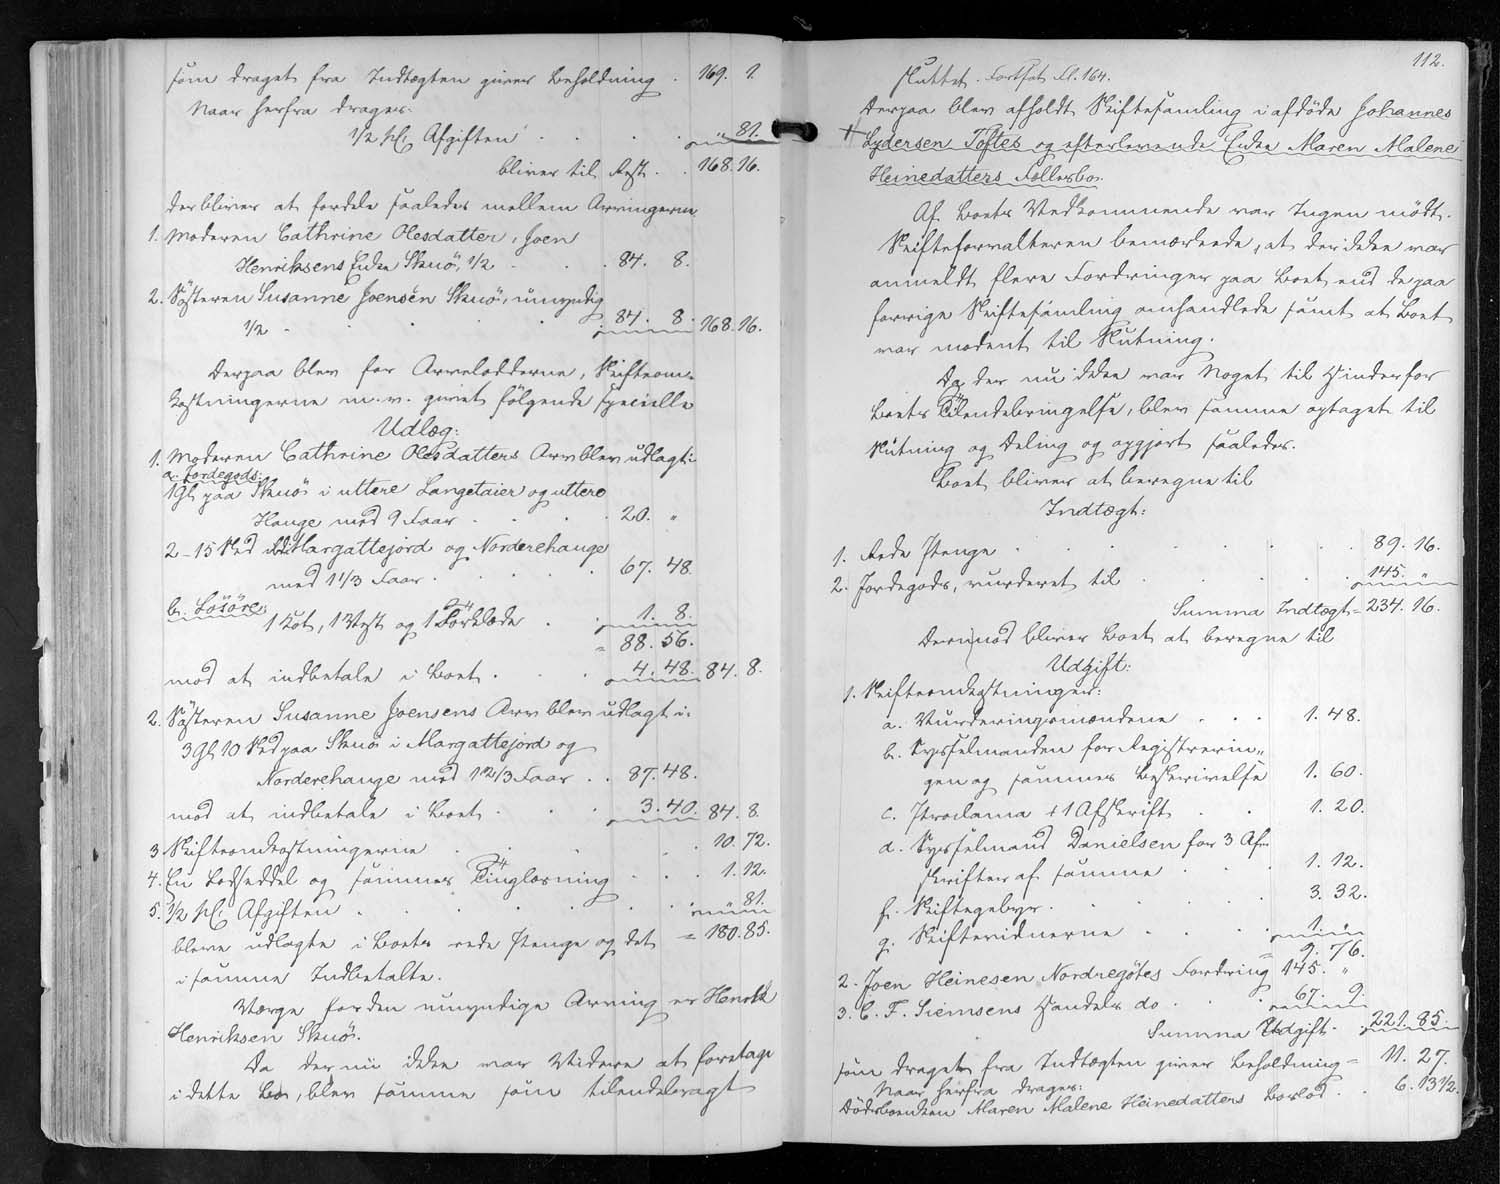 som draget fra Indtægten giver Beholdning . 169. 1.
Naar herfra drages:
1/2 pCt Afgiften . . . . „ 81.
bliver til Rest . . 168. 16.
der bliver at fordele saaledes mellem Arvingerne.
1. Moderen Cathrine Olesdatter, Joen
Henriksens Enke Skuö, 1/2 . . . 84. 8.
2. Søsteren Susanne Joensen Skuö, umyndig
1/2 . . . . 84. 8. 168. 16.
Derpaa blev for Arvelodderne, Skifteom-
kostningerne m. v. gjort følgende specielle
Udlæg:
1. Moderen Cathrine Olesdatters Arv blev udlagt:
a. Jordegods:
1 Gl. paa Skuö i uttere Langetaier og uttere
Hauge med 9 Faar . . . . 20. „
2 - 15 Skd i Margattejord og Norderehauge
med 1 1/3 Faar . . . . . 67. 48.
b. Lösöre:
1 Kot, 1 Vest og 1 Forklæde . . 1. 8.
= 88. 56.
mod at indbetale i Boet . . . 4. 48. 84. 8.
2. Søsteren Susanne Joensens Arv blev udlagt i:
3 Gl. 10 Skd paa Skuö i Margattejord og
Norderehauge med 1 2/3 Faar . . 87. 48.
mod at indbetale i Boet . . . 3. 40. 84. 8.
3 Skifteomkostningerne . . . . 10. 72.
4. En Lodseddel og sammes Tinglæsning . . . 1. 12.
5. 1/2 pCt Afgiften . . . . . . „ 81.
bleve udlagte i Boets rede Penge og det = 180. 85.
i samme Indbetalte.
Værge for den umyndige Arving er Henrik
Henriksen Skuö.
Da der nu ikke var Videre at foretage
i dette Bo, blev samme som tilendebragt
112.
sluttet. Fortsat Fl. 164.
Derpaa blev afholdt Skiftesamling i afdöde Johannes
Lydersen Toftes og efterlevende Enke Maren Malene
Heinedatters Fællesbo.
Af Boets Vedkommende var Ingen mödt.
Skifteforvalteren bemærkede, at der ikke var
anmeldt flere Fordringer paa Boet end de paa
forrige Skiftesamling omhandlede samt at Boet
var modent til Slutning.
Da der nu ikke var Noget til Hinder for
Boets Tilendebringelse, blev samme optaget til
Slutning og Deling og opgjort saaledes.
Boet bliver at beregne til
Indtægt:
1. Rede Penge . . . . . . . 89. 16.
2. Jordegods, vurderet til . . . . 145. „
Summa Indtægt = 234. 16.
Derimod bliver Boet at beregne til
Udgift:
1. Skifteomkostninger:
a. Vurderingsmændene . . . 1. 48.
b. Sysselmanden for Registrerin-
gen og sammes Beskrivelse 1. 60.
c. Proclama + 1 Afskrift . . 1. 20.
d. Sysselmand Danielsen for 3 Af-
skrifter af samme . . . 1. 12.
f. Skiftegebyr . . . . . . 3. 32.
g. Skiftevidnerne . . . . 1. „
= 9. 76.
2. Joen Heinesen Nordregötes Fordring 145. „
3. C. F. Siemsens Handels do . . . 67. 9.
Summa Udgift . 221. 85.
som draget fra Indtægten giver Beholdning = 11. 27.
Naar herfra drages:
Dödsboenken Maren Malene Heinedatters Boslod . . 6. 13 1/2.